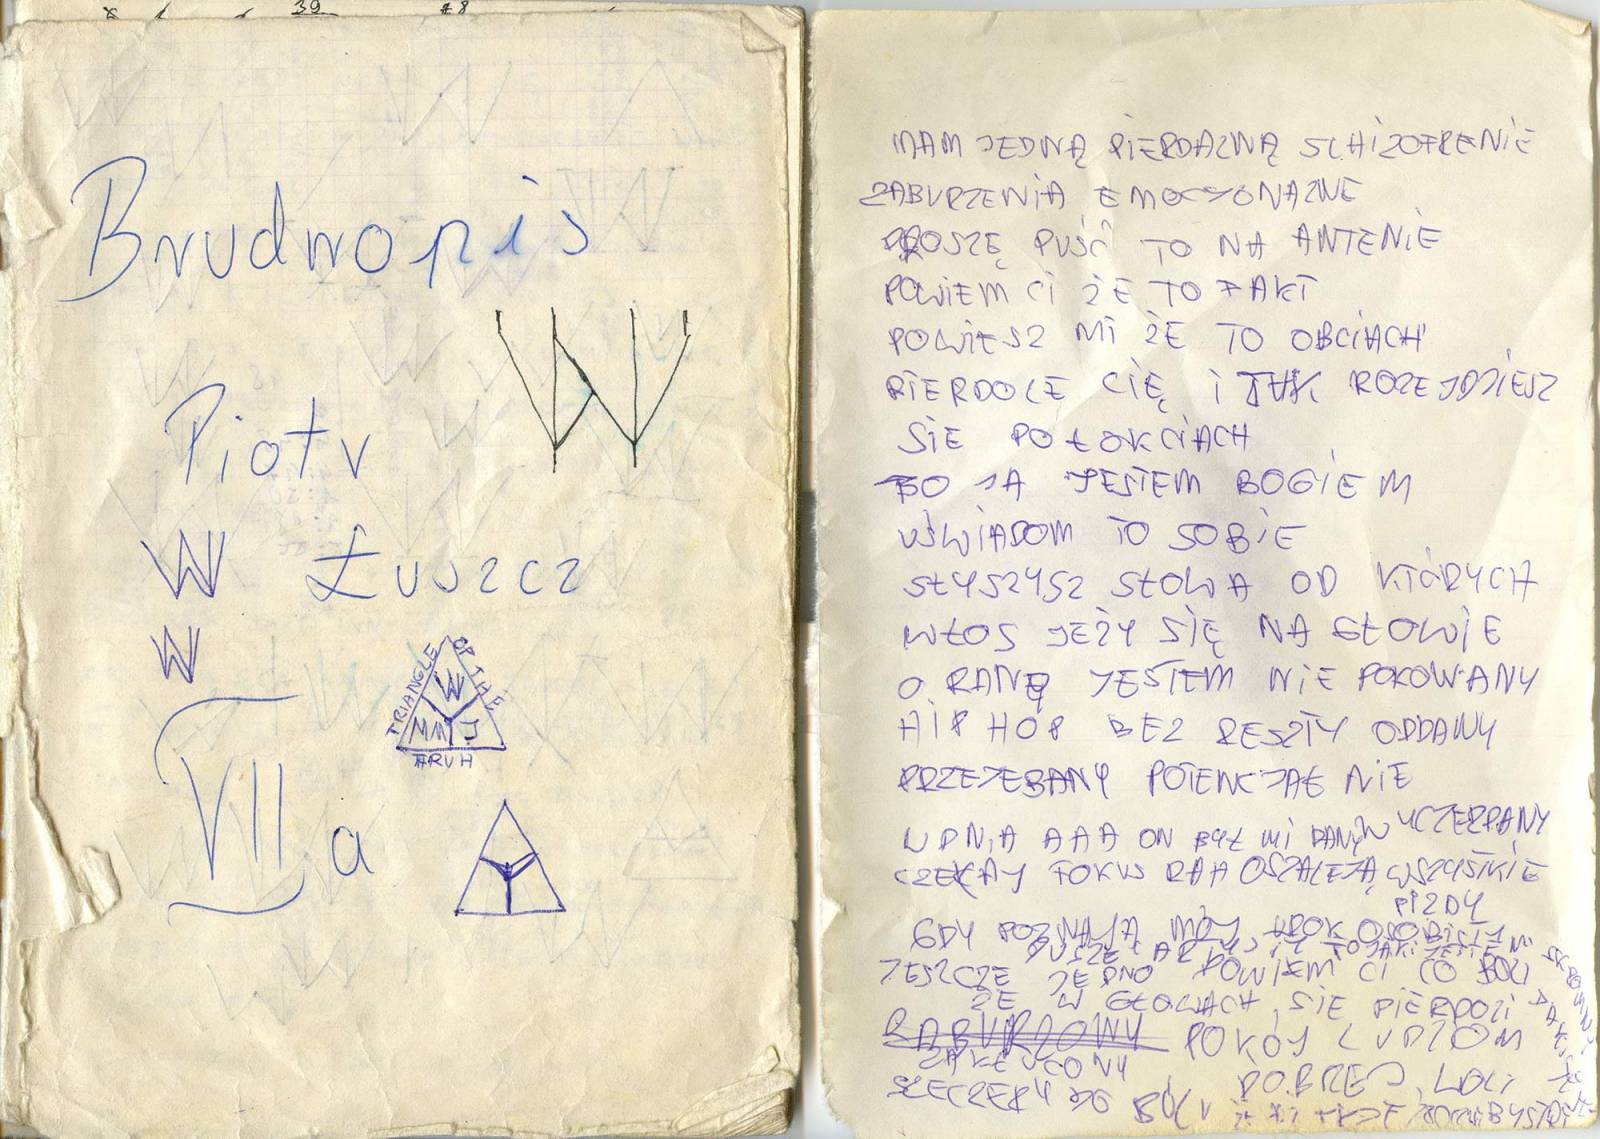 39 28
Brudnopis
W
Piotr
W Łuszcz
W
TRIANGLE OF THE
W
MM J
BRUH
VII a
MAM JEDNĄ PIERDALNĄ SCHIZOFRENIE
ZABURZENIA EMOCJONALNE
PROSZĘ PUŚĆ TO NA ANTENIE
POWIEM CI ŻE TO FAKT
POWIESZ MI ŻE TO OBCIACH
PIERDOLE CIĘ I TAK ROZEJDZIESZ
SIE PO ŁOKCIACH
BO JA JESTEM BOGIEM
UŚWIADOM TO SOBIE
SŁYSZYSZ SŁOWA OD KTÓRYCH
WŁOS JEŻY SIĘ NA GŁOWIE
O RANĘ JESTEM NIE POKOWANY
HIP HOP BEZ RESZTY ODDANY
PRZEJEBANY POTENCJAŁ NIE
WYCZERPANY
W DNIA AAA ON BYŁ MI DANY
CZEKAJ FOKUS RAH OSZALEJĄ WSZYSTKIE
PIZDY
GDY POZNAJĄ MÓJ UROK OSOBISTY
DUSZĘ ARTYSTY TO JAKI JESTEM
JESZCZE JEDNO POWIEM CI CO BOLI
ŻE W GŁOWACH SIE PIERDOLI
POKÓJ LUDZIOM
ZAKŁUCONY
DOBREJ WOLI
SZCZERY DO BÓLU